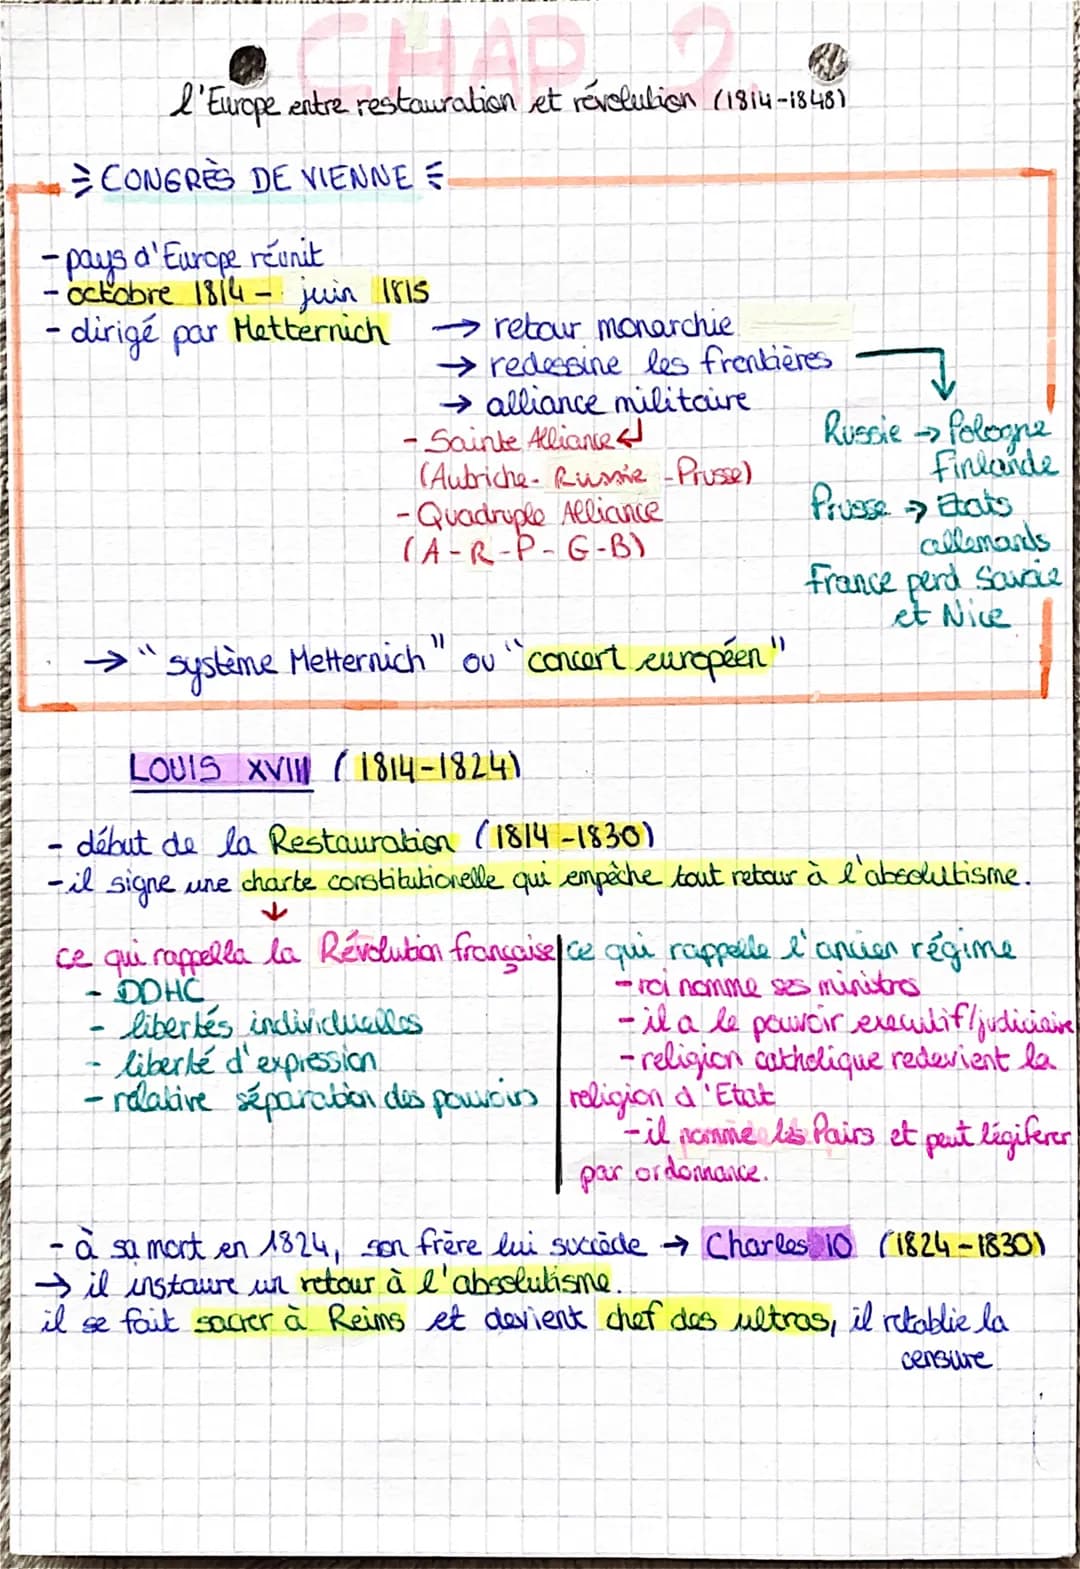 CHAP 2
l'Europe entre restauration et révolution (1814-1848)
CONGRÈS DE VIENNE
- pays d'Europe réunit
- octobre 1814 - juin 1815
- dirigé par Metternich
→ retour monarchie
→ redessine les frontières
→ alliance militaire
- Sainte Alliance
(Autriche - Russie - Prusse)
- Quadruple Alliance
(A - R - P - G-B)
Russie → Pologne
Finlande
Prusse → Etats
allemands
France perd Savoie
et Nice
→ "système Metternich" ou "concert européen"
LOUIS XVIII (1814-1824)
- début de la Restauration (1814-1830)
- il signe une charte constitutionelle qui empêche tout retour à l'absolutisme.
↓
ce qui rappella la Révolution française
- DDHC
- libertés individuelles
- liberté d'expression
- relative séparation des pouvoirs
ce qui rappelle l'ancien régime
- roi nomme ses ministres
- il a le pouvoir executif/judiciaire
- religion catholique redevient la
religion d'Etat
- il nomme les Pairs et peut légiferer
par ordonnance.
- à sa mort en 1824, son frère lui succède → Charles 10 (1824-1830)
→ il instaure un retour à l'absolutisme.
il se fait sacrer à Reims et devient chef des ultras, il retablie la
censure